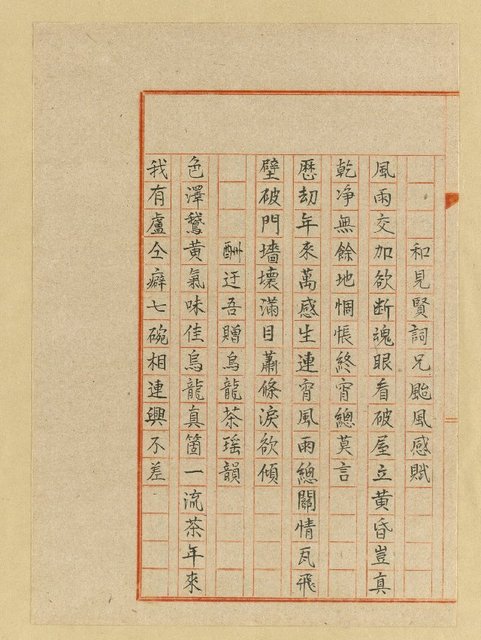 和見賢詞兄颱風感賦
風雨交加欲断魂眼看破屋立黄昏豈真
乾净無餘地惆悵終宵總莫言
歷劫年來萬感生連宵風雨總關情瓦飛
壁破門墻壞滿目蕭條淚欲傾
酬迂吾贈烏龍茶瑶韻
色澤鵞黄氣味佳烏龍真箇一流茶年來
我有盧仝癖七碗相連興不差